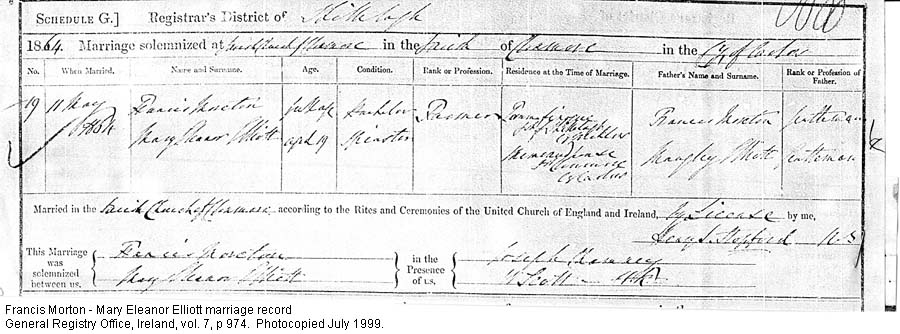 SCHEDULE G.] Registrar's District of Shillelagh
1864. Marriage solemnized at Parish Church of in the Parish of in the Co. of Carlow
No. When Married. Name and Surname. Age. Condition. Rank or Profession. Residence at the Time of Marriage. Father's Name and Surname. Rank or Profession of Father.
19 11 May Francis Morton full age Bachelor Farmer Francis Morton gentleman
1864 Mary Eleanor Elliott aged 19 Spinster Elliott gentleman
Married in the Parish Church of according to the Rites and Ceremonies of the United Church of England and Ireland, by License by me,
Henry S. Hopford
This Marriage was solemnized between us,
Francis Morton
Mary Eleanor Elliott
in the Presence of us,
Joseph
Scott
Francis Morton - Mary Eleanor Elliott marriage record
General Registry Office, Ireland, vol. 7, p 974. Photocopied July 1999.